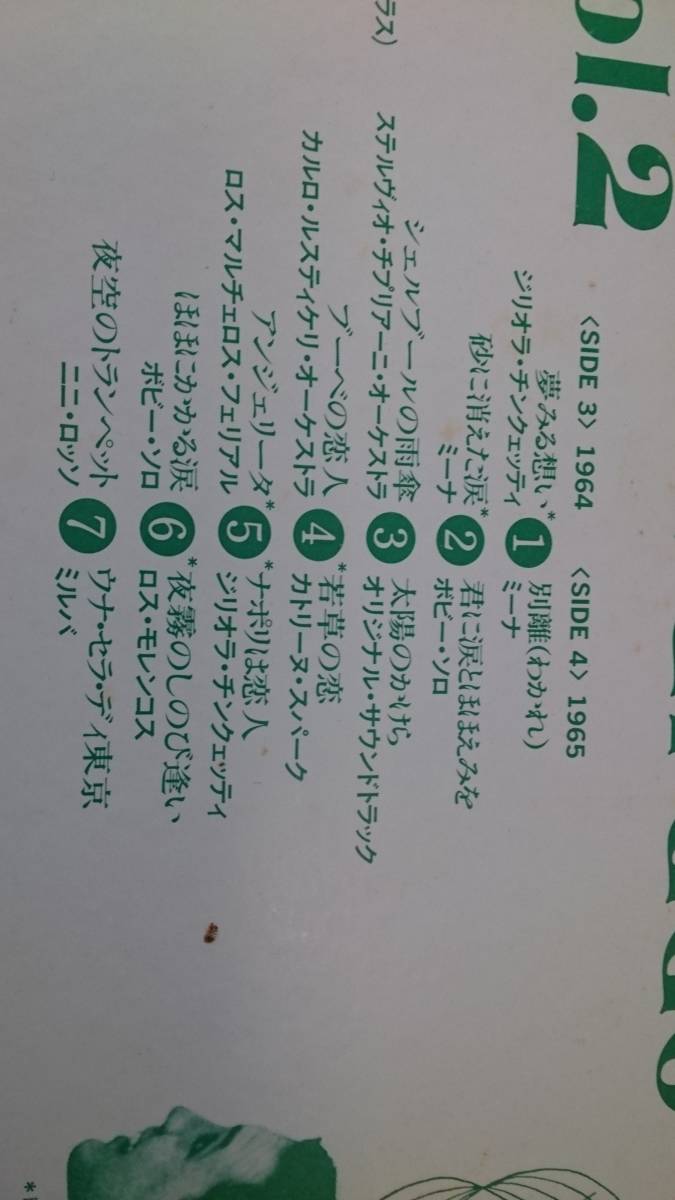 ol.2
ラス)
〈SIDE 3〉 1964
夢みる想い*
ジリオラ・チンクェッティ
1
砂に消えた涙*
ミーナ
2
シェルブールの雨傘
ステルヴィオ・チプリアーニ・オーケストラ
3
ブーベの恋人
カルロ・ルスティケリ・オーケストラ
4
アンジェリータ*
ロス・マルチェロス・フェリアル
5
ほほにかかる涙
ボビー・ソロ
6
夜空のトランペット
ニニ・ロッソ
7
〈SIDE 4〉 1965
別離(わかれ)
ミーナ
君に涙とほほえみを
ボビー・ソロ
太陽のかけら
オリジナル・サウンドトラック
*若草の恋
カトリーヌ・スパーク
*ナポリは恋人
ジリオラ・チンクェッティ
*夜霧のしのび逢い
ロス・モレンコス
ウナ・セラ・ディ東京
ミルバ
*